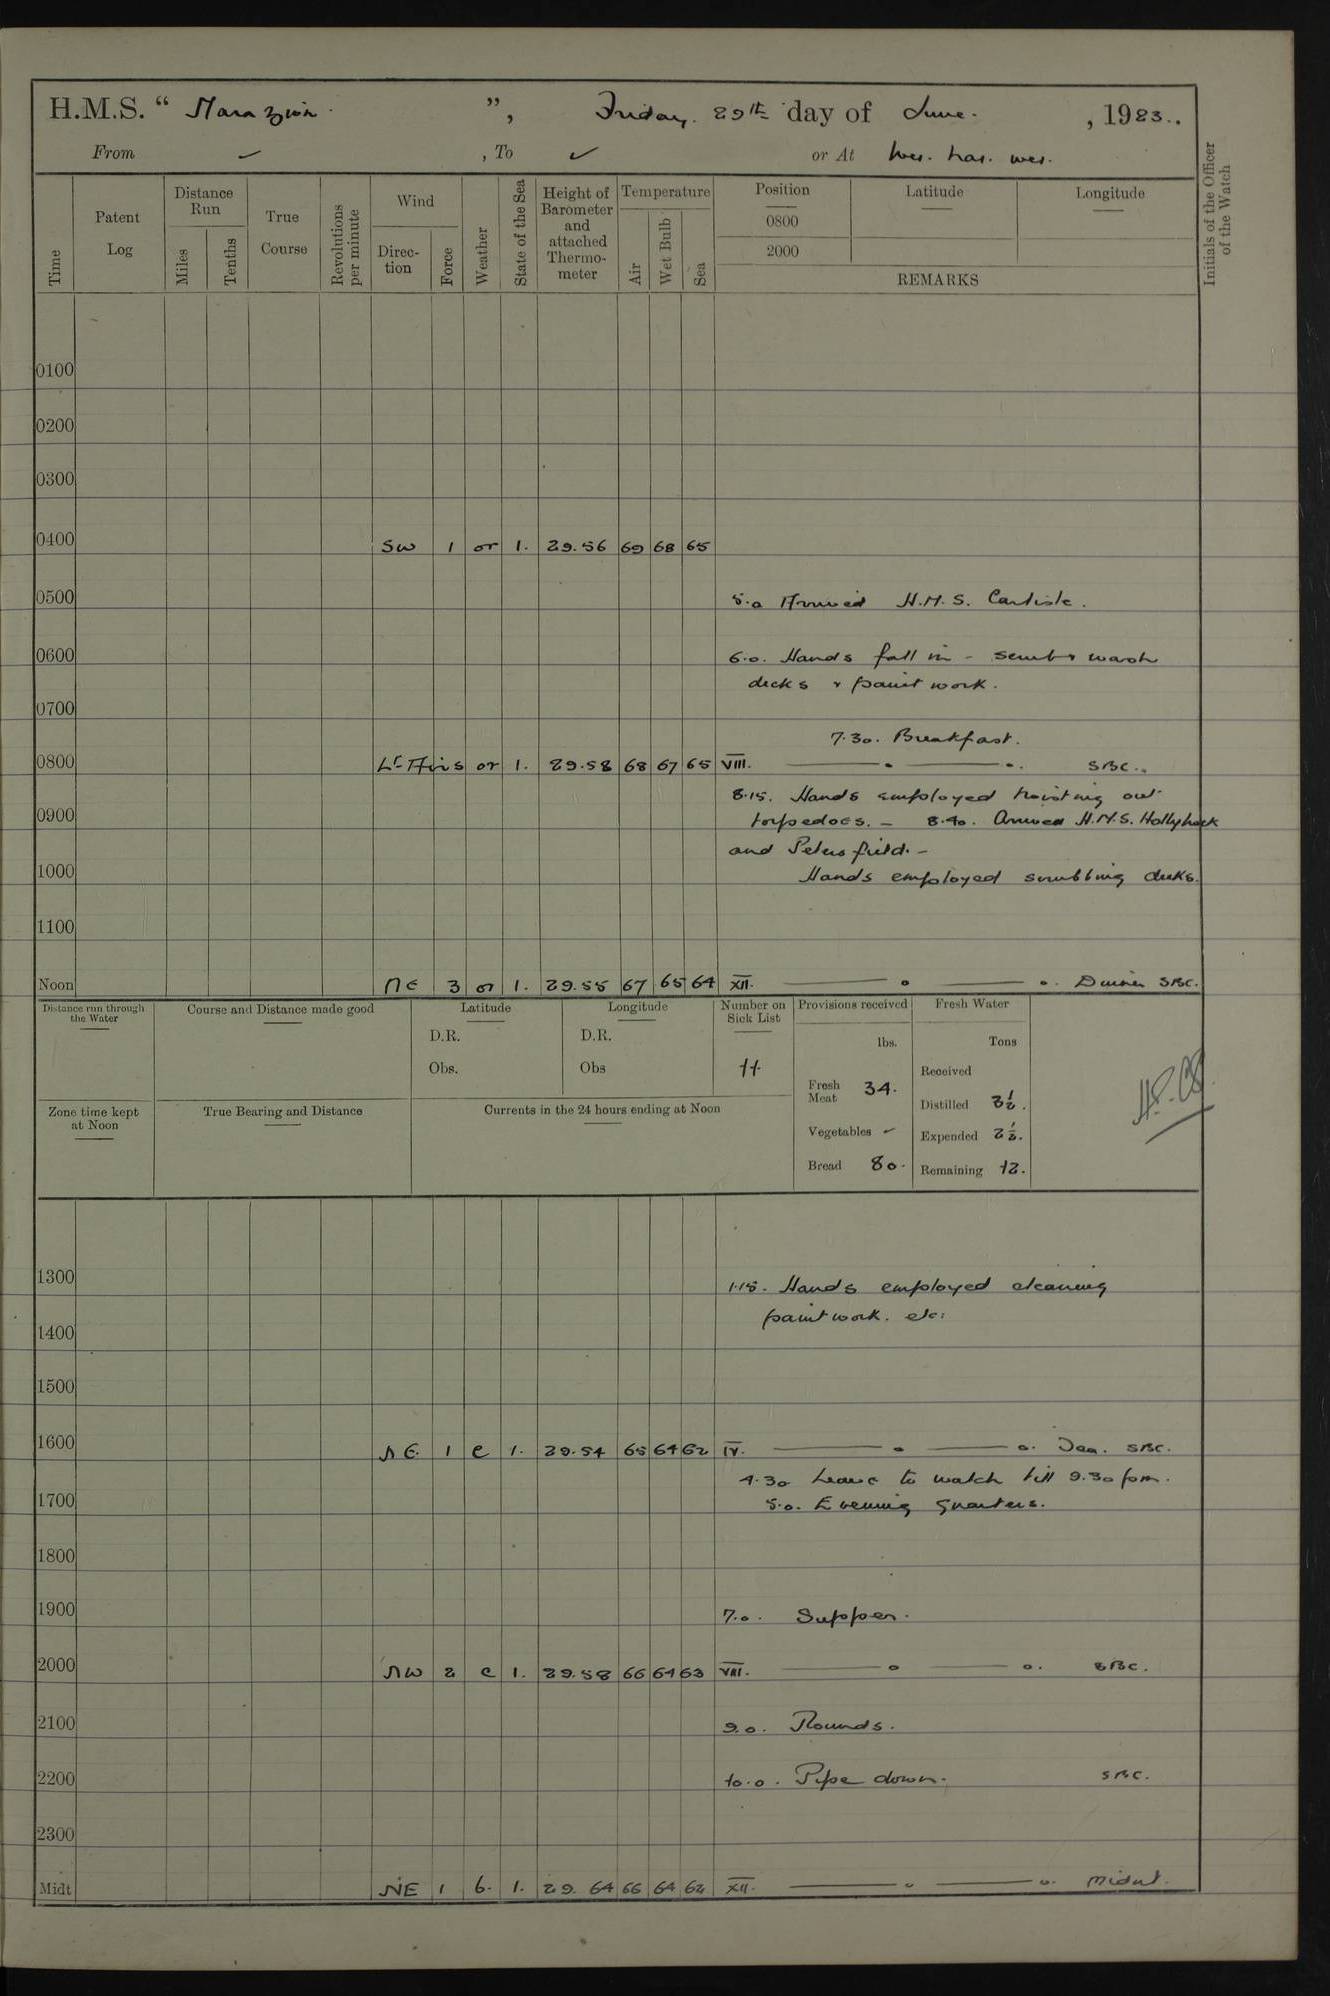 H.M.S. “ Marazion. ”, Friday. 29th day of June. , 1923..
From ✓ , To ✓ or At Wei. hai. wei.
Time
Patent Log
Distance Run
Miles
Tenths
True Course
Revolutions per minute
Wind
Direction
Force
Weather
State of the Sea
Height of Barometer and attached Thermometer
Temperature
Air
Wet Bulb
Sea
Position
0800
2000
Latitude
Longitude
REMARKS
Initials of the Officer of the Watch
0100
0200
0300
0400 SW 1 or 1. 29.56 69 68 65
0500 5.0 Arrived H.M.S. Carlisle.
0600 6.0. Hands fall in - scrub & wash
decks & paint work.
0700
7.30. Breakfast.
0800 Lt Airs or 1. 29.58 68 67 65 VIII. SBC.
8.15. Hands employed hoisting out
0900 torpedoes. – 8.40. Arrived H.M.S. Hollyhock
and Petersfield. –
1000 Hands employed scrubbing decks.
1100
Noon NE 3 or 1. 29.55 67 65 64 XII. Dinner SBC.
Distance run through the Water
Course and Distance made good
Latitude
D.R.
Obs.
Longitude
D.R.
Obs
Number on Sick List
Provisions received
lbs.
Fresh Meat 34.
Vegetables –
Bread 80.
Fresh Water
Tons
Received
Distilled 3½.
Expended 2½.
Remaining 12.
Zone time kept at Noon
True Bearing and Distance
Currents in the 24 hours ending at Noon
1300 1.15. Hands employed cleaning
paint work. etc:
1400
1500
1600 NE. 1 c 1. 29.54 65 64 62 IV. Tea. SBC.
4.30 Leave to watch till 9.30 pm.
1700 5.0. Evening Quarters.
1800
1900 7.0. Supper.
2000 NW 2 c 1. 29.58 66 64 63 VIII. SBC.
2100 9.0. Rounds.
2200 10.0. Pipe down. SBC.
2300
Midt NE 1 b. 1. 29. 64 66 64 62 XII. Midnt.